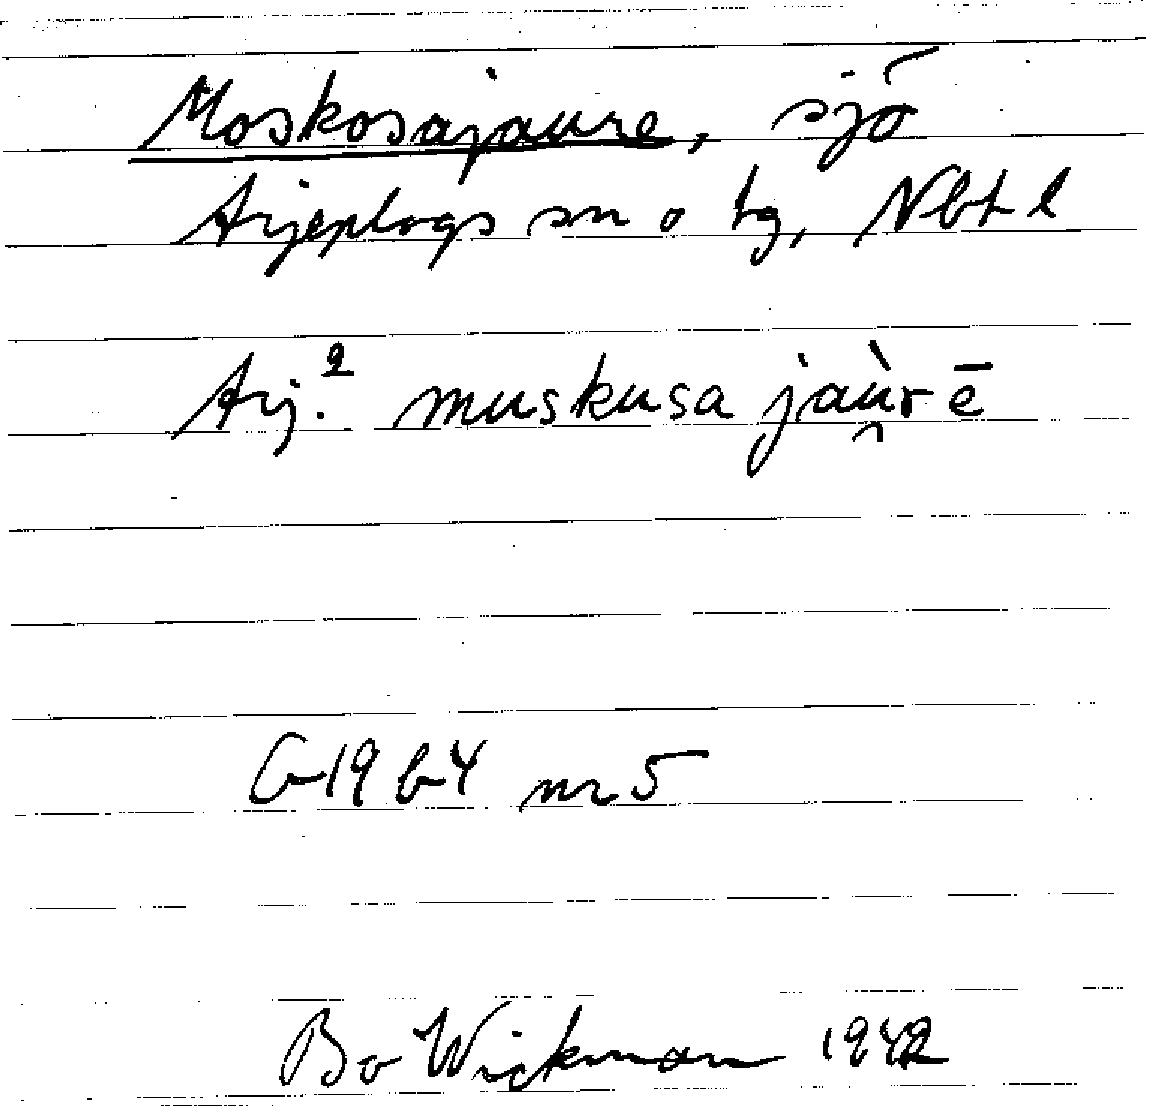 Moskosajaure, sjö
Arjeplogs sn o tg, Nbt l
Arj.² muskusa jaù̯rē
G 19 b 4 nr 5
Bo Wickman 1942